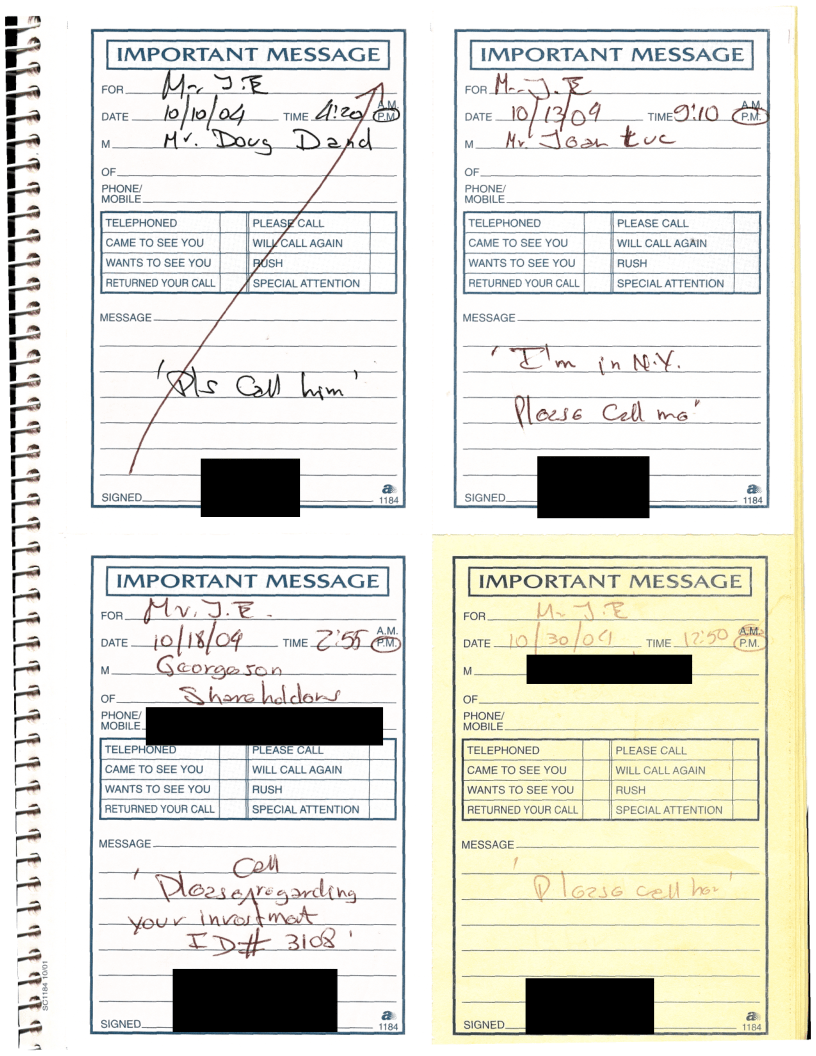 IMPORTANT MESSAGE
FOR Mr. J.E
DATE 10/10/04 TIME 4:20 A.M. P.M.
M Mr. Doug Dand
OF
PHONE/
MOBILE
TELEPHONED PLEASE CALL
CAME TO SEE YOU WILL CALL AGAIN
WANTS TO SEE YOU RUSH
RETURNED YOUR CALL SPECIAL ATTENTION
MESSAGE
'Pls Call him'
SIGNED
a
1184
IMPORTANT MESSAGE
FOR Mr. J.E
DATE 10/13/04 TIME 9:10 A.M. P.M.
M Mr. Jean Luc
OF
PHONE/
MOBILE
TELEPHONED PLEASE CALL
CAME TO SEE YOU WILL CALL AGAIN
WANTS TO SEE YOU RUSH
RETURNED YOUR CALL SPECIAL ATTENTION
MESSAGE
'I'm in N.Y.
Please Call me"
SIGNED
a
1184
IMPORTANT MESSAGE
FOR Mr. J.E.
DATE 10/18/04 TIME 2:55 A.M. P.M.
M Georgeson
OF Shareholders
PHONE/
MOBILE
TELEPHONED PLEASE CALL
CAME TO SEE YOU WILL CALL AGAIN
WANTS TO SEE YOU RUSH
RETURNED YOUR CALL SPECIAL ATTENTION
MESSAGE
Call
'Please regarding
your investment
ID# 3108'
SIGNED
a
1184
IMPORTANT MESSAGE
FOR Mr J.E
DATE 10/30/04 TIME 12:50 A.M. P.M.
M
OF
PHONE/
MOBILE
TELEPHONED PLEASE CALL
CAME TO SEE YOU WILL CALL AGAIN
WANTS TO SEE YOU RUSH
RETURNED YOUR CALL SPECIAL ATTENTION
MESSAGE
'Please call her'
SIGNED
a
1184
SC1184 10/01